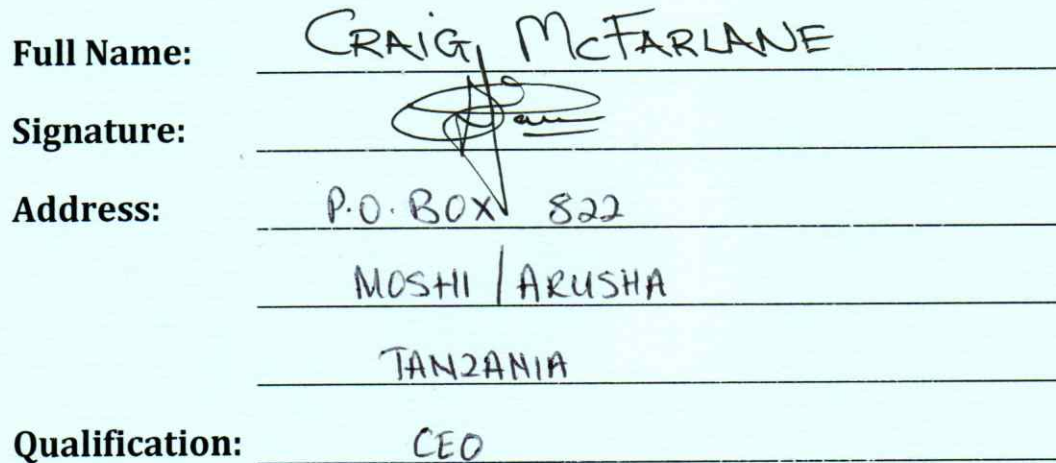 Full Name: CRAIG McFARLANE
Signature:
Address: P.O. BOX 822
MOSHI / ARUSHA
TANZANIA
Qualification: CEO